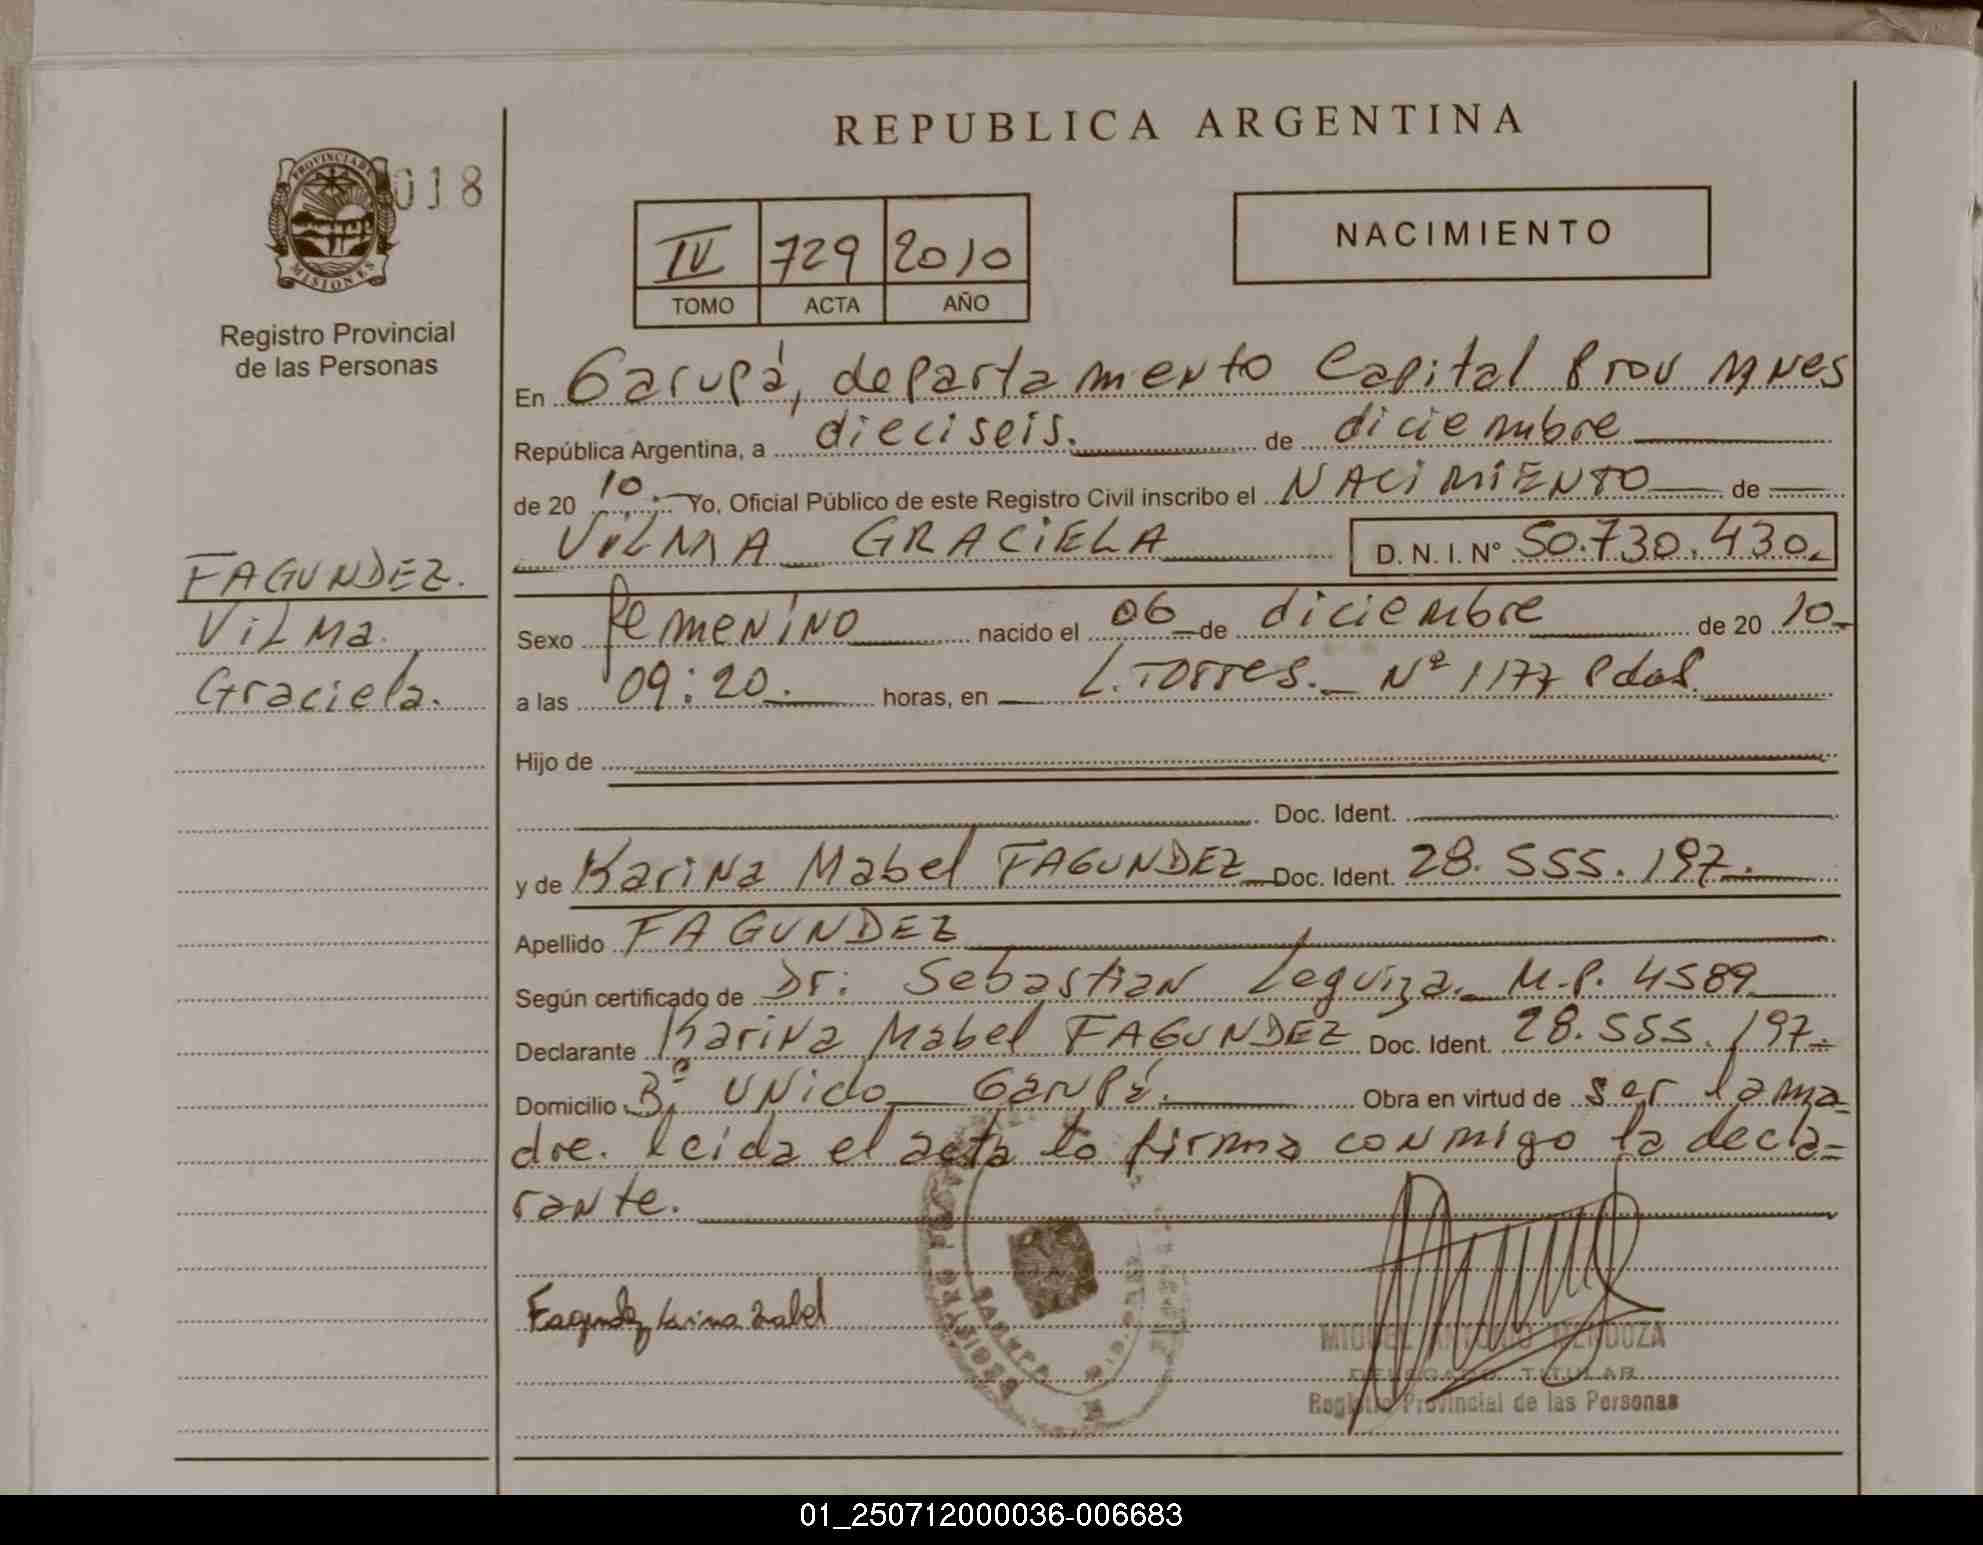 REPUBLICA ARGENTINA
PROVINCIA DE MISIONES
018
Registro Provincial
de las Personas
IV 729 2010
TOMO ACTA AÑO
NACIMIENTO
FAGUNDEZ.
Vilma
Graciela.
En Garupá, departamento Capital Prov Mnes
República Argentina, a dieciseis. de diciembre
de 20 10. Yo, Oficial Público de este Registro Civil inscribo el NACIMIENTO de
VILMA GRACIELA D. N. I. N° 50.730.430.
Sexo femenino nacido el 06 de diciembre de 20 10
a las 09:20. horas, en L. Torres. Nº 1177 Pdas.
Hijo de
Doc. Ident.
y de Karina Mabel FAGUNDEZ Doc. Ident. 28.555.197.
Apellido FAGUNDEZ
Según certificado de Dr: Sebastian Leguiza. M.P. 4589
Declarante Karina Mabel FAGUNDEZ Doc. Ident. 28.555.197.
Domicilio Bº Unido Garupá. Obra en virtud de ser la ma-
dre. leida el acta la firma conmigo la decla-
rante.
MIGUEL ANTONIO MENDOZA
DELEGADO TITULAR
Registro Provincial de las Personas
01_250712000036-006683